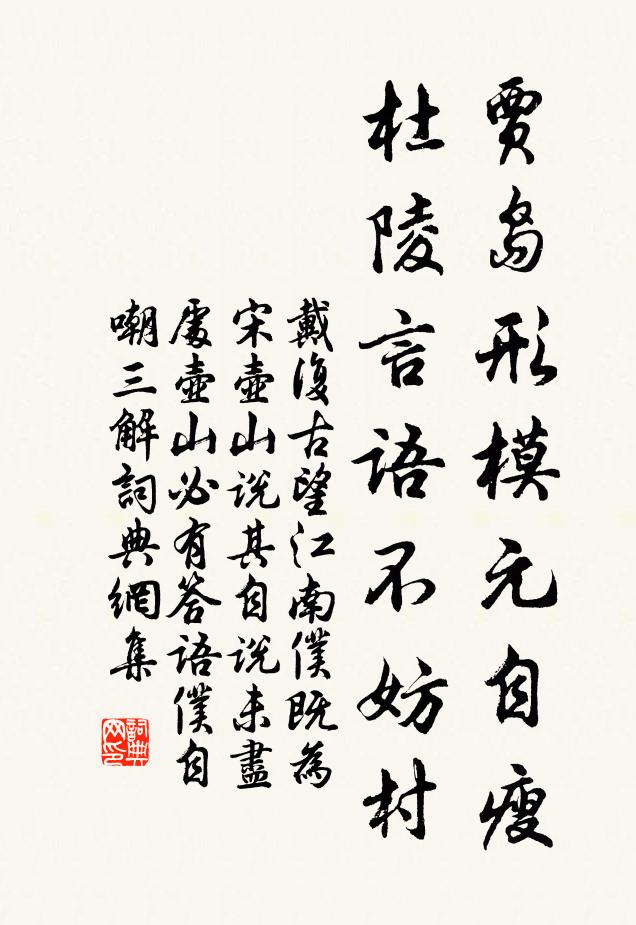 賈島形模元自瘦
杜陵言語不妨村
戴復古望江南僕既為
宋壺山說其自說未盡
處壺山必有答語僕自
嘲三解詞典網集
詞典
网印